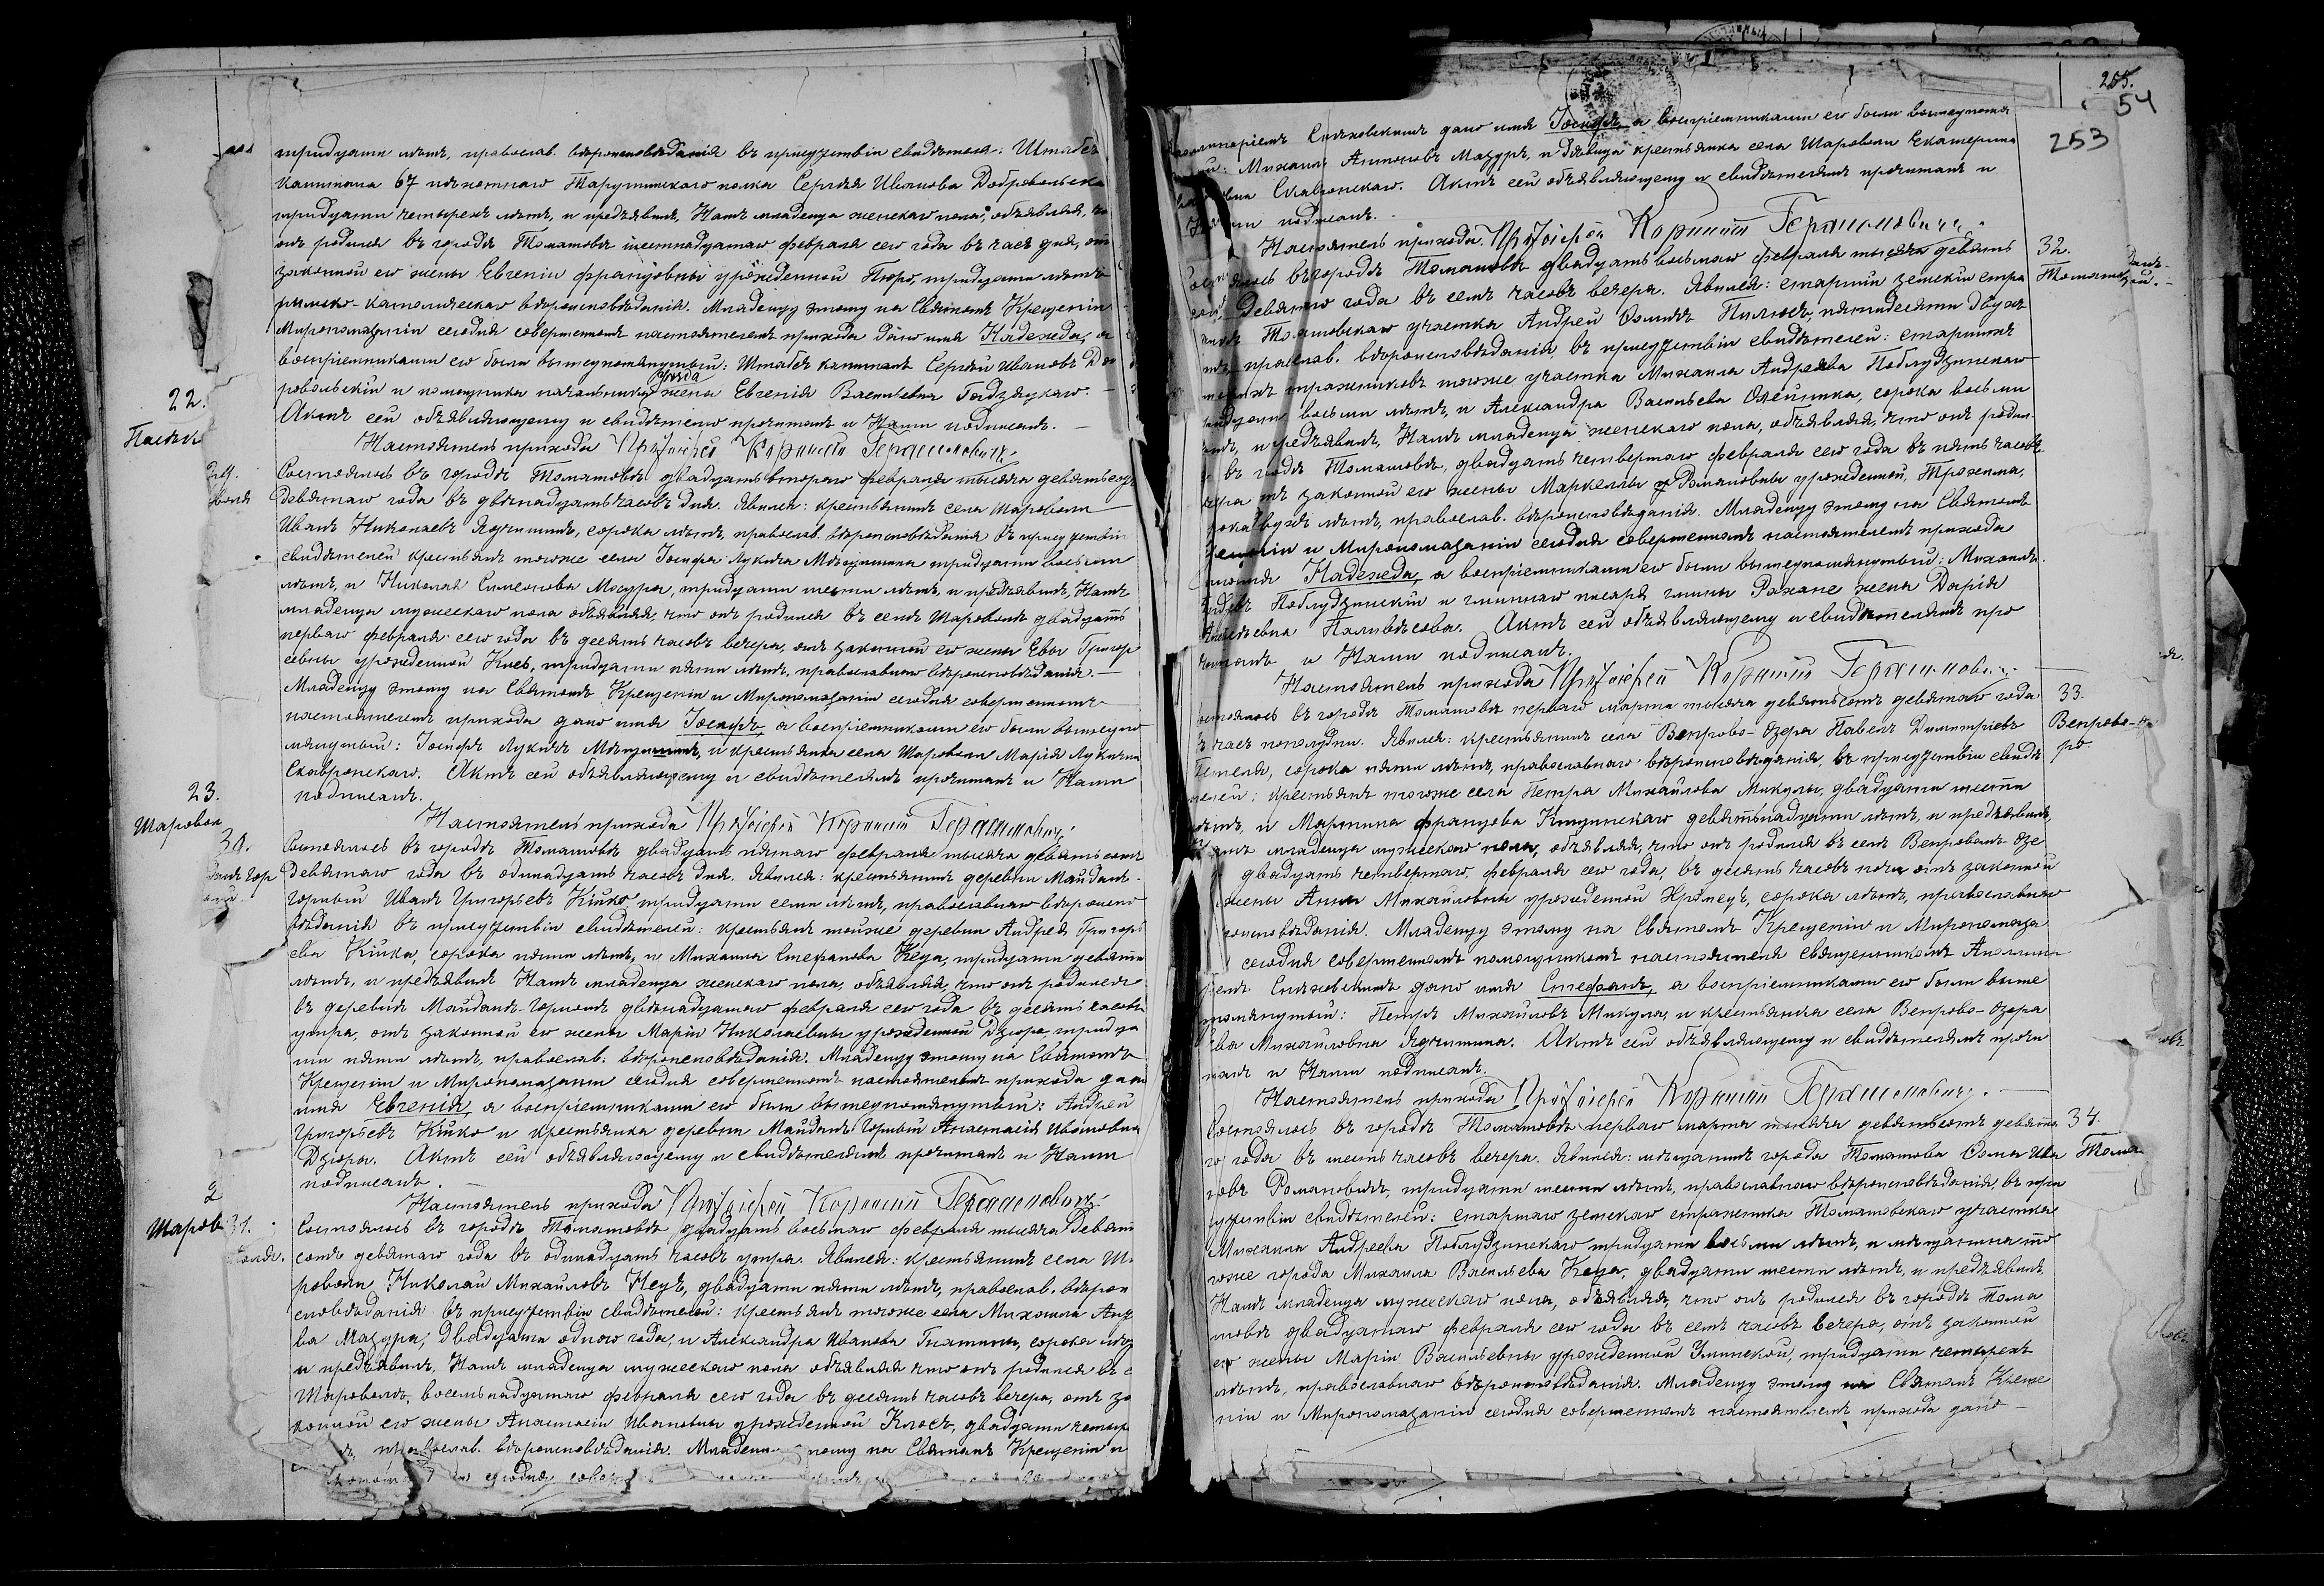 тридцати лѣтъ, православ. вѣроисповѣданія въ присутствіи свидѣтеля: Штабсъ
капитана 67 пѣхотнаго Тарутинскаго полка Сергѣя Иванова Добровольска
тридцати четырехъ лѣтъ, и предъявилъ Намъ младенца женскаго пола, объявляя, что
онъ родился въ городѣ Томашовѣ шестнадцатаго февраля сего года въ часъ дня, отъ
законной его жены Евгеніи Францовны урожденной Пюро, тридцати лѣтъ
римско-католическаго вѣроисповѣданія. Младенцу этому на Святомъ Крещеніи
Миропомазаніи сегодня совершенномъ настоятелемъ прихода дано имя Надежда, а
воспріемниками его были вышеупомянутый: Штабсъ капитанъ Сергѣй Ивановъ До
ровольскій и помощника начальника уѣзда жена Евгенія Васильевна Гайдзяцкаго.
Актъ сей объявляющему и свидѣтелю прочитанъ и Нами подписанъ.
Настоятель прихода Протоіерей Корнилій Герасимовичъ
Состоялось въ городѣ Томашовѣ двадцать втораго февраля тысяча девятьсотъ
девятаго года въ двѣнадцать часовъ дня. Явился: крестьянинъ села Шароволи
Иванъ Николаевъ Ядчишинъ, сорока лѣтъ, православ. вѣроисповѣданія въ присутствіи
свидѣтелей крестьянъ тогоже села Іосифа Лукича тридцати восьми
лѣтъ, и Николая Симеонова Мазура, тридцати шести лѣтъ, и предъявилъ Намъ
младенца мужескаго пола объявляя, что онъ родился въ селѣ Шароволѣ двадцать
перваго февраля сего года въ десять часовъ вечера, отъ законной его жены Евы Григор
евны урожденной Кись, тридцати пяти лѣтъ, православнаго вѣроисповѣданія.
Младенцу этому на Святомъ Крещеніи и Миропомазаніи сегодня совершенномъ
настоятелемъ прихода дано имя Іосифъ, а воспріемниками его были вышеупо
мянутый: Іосифъ Лукичъ и крестьянка села Шароволи Марія Лукична
Скавронскаго. Актъ сей объявляющему и свидѣтелямъ прочитанъ и Нами
подписанъ.
Настоятель прихода Протоіерей Корнилій Герасимовичъ
30.
Состоялось въ городѣ Томашовѣ двадцать пятаго февраля тысяча девятьсотъ
девятаго года въ одинадцать часовъ дня. Явился: крестьянинъ деревни Майданъ-
Горный Иванъ Григорьевъ Кійко, тридцати семи лѣтъ, православнаго вѣроиспо
вѣданія въ присутствіи свидѣтелей: крестьянъ тойже деревни Андрея Григорь
ева Кійка, сорока пяти лѣтъ, и Михаила Стефанова Кеца, тридцати девяти
лѣтъ, и предъявилъ Намъ младенца женскаго пола, объявляя, что онъ родился
въ деревнѣ Майданъ-Горномъ двѣнадцатаго февраля сего года въ десять часовъ
утра, отъ законной его жены Маріи Николаевны урожденной Дзюра, тридца
ти пяти лѣтъ, православ. вѣроисповѣданія. Младенцу этому на Святомъ
Крещеніи и Миропомазаніи сегодня совершенномъ настоятелемъ прихода дано
имя Евгенія, а воспріемниками его были вышеупомянутый: Андрей
Григорьевъ Кійко и крестьянка деревни Майданъ Горный Анастасія Ивановна
Дзюры. Актъ сей объявляющему и свидѣтелямъ прочитанъ и Нами
подписанъ.
Настоятель прихода Протоіерей Корнилій Герасимовичъ
31.
Состоялось въ городѣ Томашовѣ двадцать восьмаго февраля тысяча девять
сотъ девятаго года въ одинадцать часовъ утра. Явился: крестьянинъ села Ша
роволи Николай Михайловъ Кецъ, двадцати пяти лѣтъ, православ. вѣроис
повѣданія въ присутствіи свидѣтелей: крестьянъ тогоже села Михаила Ант
ва Мазура, двадцати одного года, и Александра Иванова Гнатина, сорока лѣтъ
и предъявилъ Намъ младенца мужескаго пола объявляя что онъ родился въ с
Шароволѣ, восемьнадцатаго февраля сего года въ десять часовъ вечера, отъ за
конной его жены Анастасіи Ивановны урожденной Клось, двадцати четыр
православ. вѣроисповѣданія. Младенцу этому на Святомъ Крещеніи и
22.
23.
Шаровол
Шаров
255.
54
253
Сняховскимъ дано имя Іосифъ, а воспріемниками его были вышеупомя
Михаилъ Антоновъ Мазуръ, и дѣвица крестьянка села Шароволи Екатерина
Скавронскаго. Актъ сей объявляющему и свидѣтелямъ прочитанъ и
Нами подписанъ.
Настоятель прихода Протоіерей Корнилій Герасимовичъ
32.
Томашов
Состоялось въ городѣ Томашовѣ двадцать восьмаго февраля тысяча девять
сотъ девятаго года въ семь часовъ вечера. Явился: старшій земскій стра
жникъ Томашовскаго участка Андрей Ѳомичъ Пилюсъ, пятидесяти двухъ
лѣтъ православ. вѣроисповѣданія въ присутствіи свидѣтелей: старшихъ
земскихъ стражниковъ тогоже участка Михаила Андреева Поблудзинскаго
тридцати восьми лѣтъ, и Александра Васильева Олейника, сорока восьми
лѣтъ, и предъявилъ Намъ младенца женскаго пола, объявляя, что онъ родил
ся въ городѣ Томашовѣ, двадцать четвертаго февраля сего года въ пять часовъ
вечера отъ законной его жены Маркелы Романовны урожденной Трохима,
сорока двухъ лѣтъ, православ. вѣроисповѣданія. Младенцу этому на Святомъ
Крещеніи и Миропомазаніи сегодня совершенномъ настоятелемъ прихода
дано имя Надежда, а воспріемниками его были вышеупомянутый: Михаилъ
Андреевъ Поблудзинскій и гминнаго писаря гмины Рахане жена Дарія
Паливѣсова. Актъ сей объявляющему и свидѣтелямъ про
читанъ и Нами подписанъ.
Настоятель прихода Протоіерей Корнилій Герасимовичъ
33.
Вепрово-Озе
ро.
Состоялось въ городѣ Томашовѣ перваго марта тысяча девятьсотъ девятаго года
въ часъ пополудни. Явился: крестьянинъ села Вепрово-Озера Павелъ Димитріевъ
сорока пяти лѣтъ, православнаго вѣроисповѣданія, въ присутствіи свидѣ
телей: крестьянъ тогоже села Петра Михайлова Микулы, двадцати шести
лѣтъ, и Мартина Францова Кицинскаго девятьнадцати лѣтъ, и предъявилъ
Намъ младенца мужескаго пола, объявляя, что онъ родился въ селѣ Вепровомъ-Озе
рѣ двадцать четвертаго февраля сего года, въ десять часовъ ночи отъ законной
его жены Анны Михайловны урожденной сорока лѣтъ, православнаго
вѣроисповѣданія. Младенцу этому на Святомъ Крещеніи и Миропомаза
ніи сегодня совершенномъ помощникомъ настоятеля священникомъ Аполлина
ріемъ Сняховскимъ дано имя Стефанъ, а воспріемниками его были выше
упомянутый: Петръ Михайловъ Микула, и крестьянка села Вепрово-Озера
Ева Михайловна Ядчишина. Актъ сей объявляющему и свидѣтелямъ прочи
танъ и Нами подписанъ.
Настоятель прихода Протоіерей Корнилій Герасимовичъ.
34.
Тома
Состоялось въ городѣ Томашовѣ перваго марта тысяча девятьсотъ девята
го года въ шесть часовъ вечера. Явился: мѣщанинъ города Томашова Ѳома Ива
новъ Романовичъ, тридцати шести лѣтъ, православнаго вѣроисповѣданія въ при
сутствіи свидѣтелей: старшаго земскаго стражника Томашовскаго участка
Михаила Андреева Поблудзинскаго тридцати восьми лѣтъ, и мѣщанина то
гоже города Михаила Васильева Кеца, двадцати шести лѣтъ, и предъявилъ
Намъ младенца мужескаго пола, объявляя, что онъ родился въ городѣ Тома
шовѣ двадцатаго февраля сего года въ семь часовъ вечера, отъ законной
его жены Маріи Васильевны урожденной Улинской, тридцати четырехъ
лѣтъ, православнаго вѣроисповѣданія. Младенцу этому на Святомъ Креще
ніи и Миропомазаніи сегодня совершенномъ настоятелемъ прихода дано